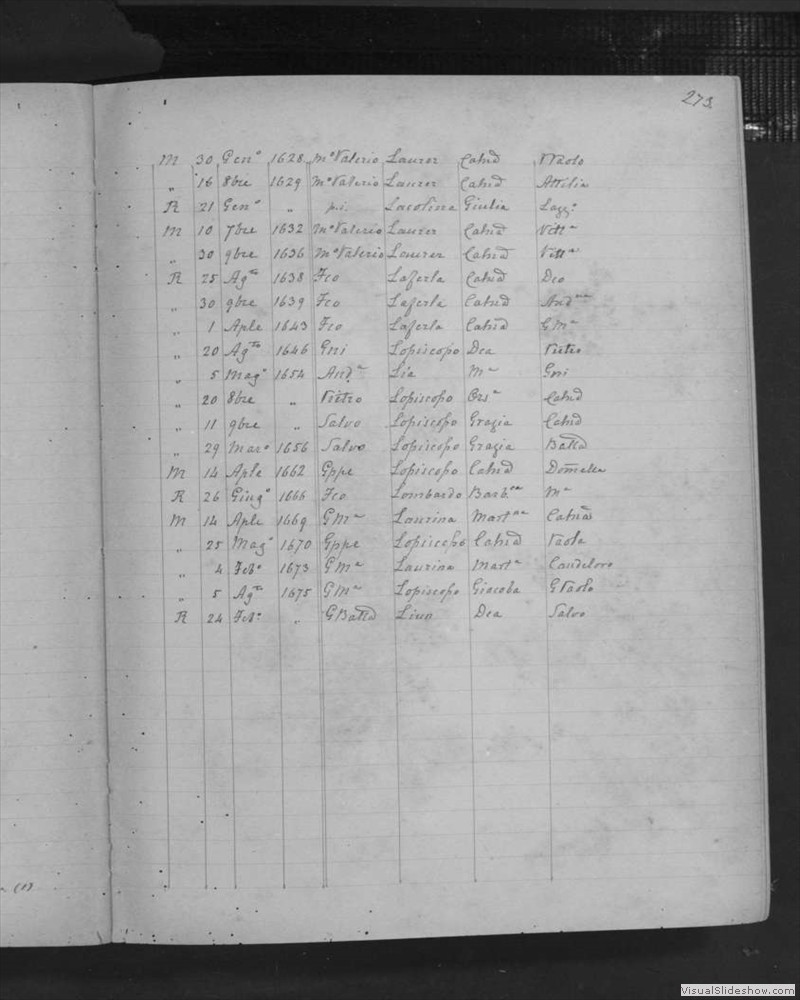 273
M 30 Gen° 1628 M° Valerio Laurer Catnd PPaolo
„ 16 8bre 1629 M° Valerio Laurer Catnd Attilia
R 21 Gen° „ p.i. Lacolina Giulia Lazz°
M 10 7bre 1632 M° Valerio Laurer Catnd Vitta
„ 30 9bre 1636 M° Valerio Laurer Catnd Vitta
R 25 Agto 1638 Fco Laferla Catnd Dco
„ 30 9bre 1639 Fco Laferla Catnd Andna
„ 1 Aple 1643 Fco Laferla Catnd GMa
„ 20 Agto 1646 Gni Lopiscopo Dca Pietro
„ 5 Mag° 1654 Anda Lia Ma Gni
„ 20 8bre „ Pietro Lopiscopo Orsa Catnd
„ 11 9bre „ Salvo Lopiscopo Grazia Catnd
„ 29 Mar° 1656 Salvo Lopiscopo Grazia Battd
M 14 Aple 1662 Gppe Lopiscopo Catnd Domella
R 26 Giug° 1666 Fco Lombardo Barbra Ma
M 14 Aple 1669 GMa Laurina Martna Catnd
„ 25 Mag° 1670 Gppe Lopiscopo Catnd Paola
„ 4 Feb° 1673 GMa Laurina Marta Candelora
„ 5 Agto 1675 GMa Lopiscopo Giacoba GPaolo
R 24 Feb° „ GBattd Livo Dca Salvo
(1)
VisualSlideshow.com